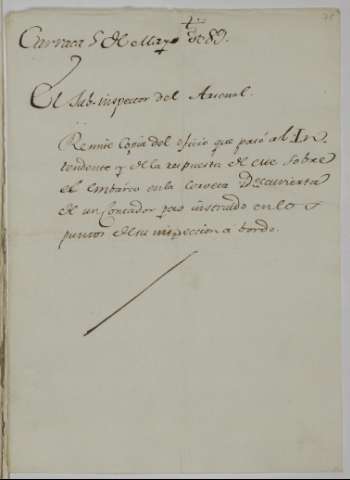 Carraca 5 de Mayo de 89.
El Sub-inspector del Arsenal.
Remite Copia del oficio que pasó al In
tendente y de la respuesta de este sobre
el embarco en la Corveta Descuvierta
de un Contador poco instruido en los
puntos de su inspeccion a bordo.